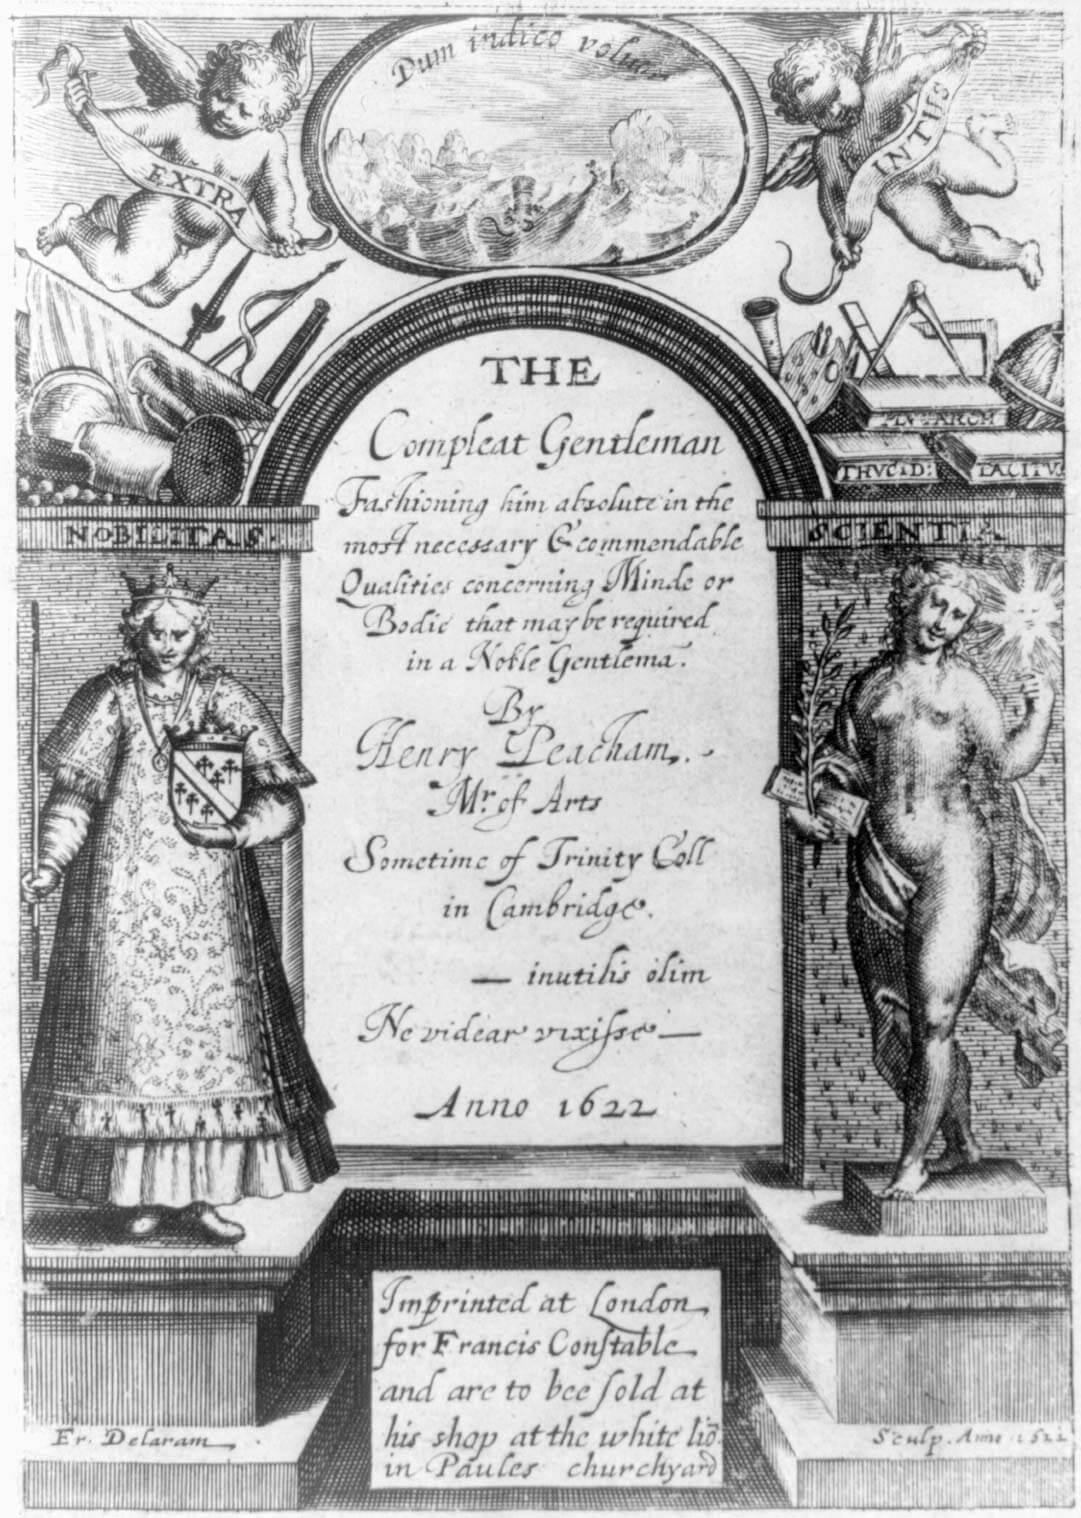 Dum iudico voluen
EXTRA
INTUS
PLVTARCH
THVCID:
TACITV
NOBILITAS.
SCIENTIA
THE
Compleat Gentleman
Fashioning him absolute in the
most necessary & commendable
Qualities concerning Minde or
Bodie that may be required
in a Noble Gentlemā.
By
Henry Peacham.
Mr. of Arts
Sometime of Trinity Coll
in Cambridge.
— inutilis olim
Ne videar vixiſse —
Anno 1622
Imprinted at London
for Francis Conſtable
and are to bee ſold at
his shop at the white liō
in Paules churchyard
Fr. Delaram
Sculp. Anno 1622